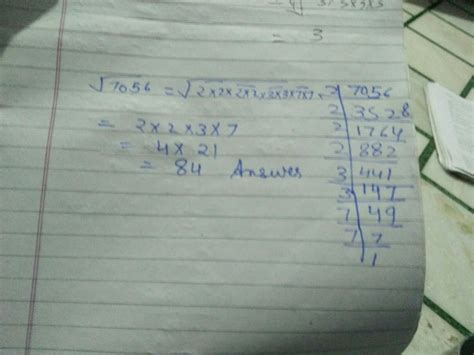 = 3
√7056 = √2×2×2×2×3×3×7×7
= 2×2×3×7
= 4×21
= 84 Answer
2 | 7056
2 | 3528
2 | 1764
2 | 882
3 | 441
3 | 147
7 | 49
7 | 7
1